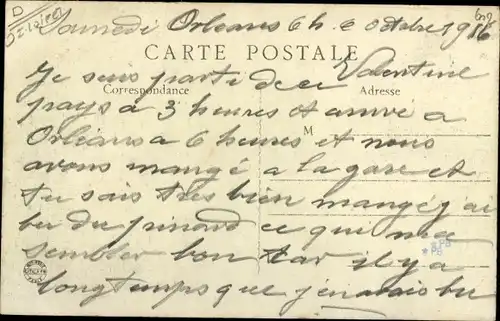 Samedi Orléans 6h e octobre 1916
CARTE POSTALE
Je suis parti de ce Valentine
Correspondance Adresse
pays a 3 heures et arrivé a
M
Orléans a 6 heures et nous
avons mangé a la gare et
tu sais tres bien mangé j ai
bu du pinard ce qui ma
sembler bon car il y a
longtemps que j en avais bu